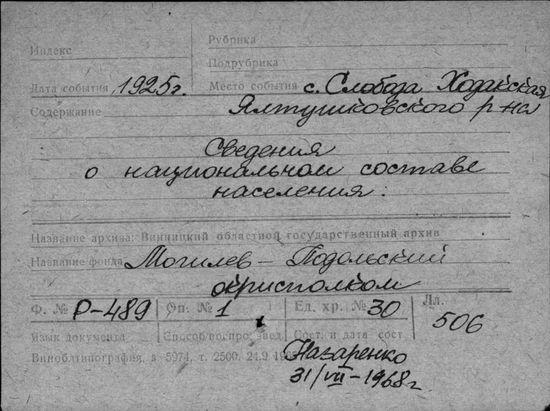 Индекс
Рубрика
Подрубрика
Дата события 1925г. Место события с. Слобода Ходакская
Содержание Ялтушковского р-на
Сведения
о национальном составе
населения.
Название архива: Винницкий областной государственный архив
Название фонда Могилев-Подольский
окрисполком
Ф. № Р-489 Оп. № 1 Ед. хр. № 30 Лл. 506
Язык документа Способ воспроизвед. Сост. и дата сост.
Виноблтипография, з. 5974, т. 2500, 24.9
Назаренко
31/VII-1968г